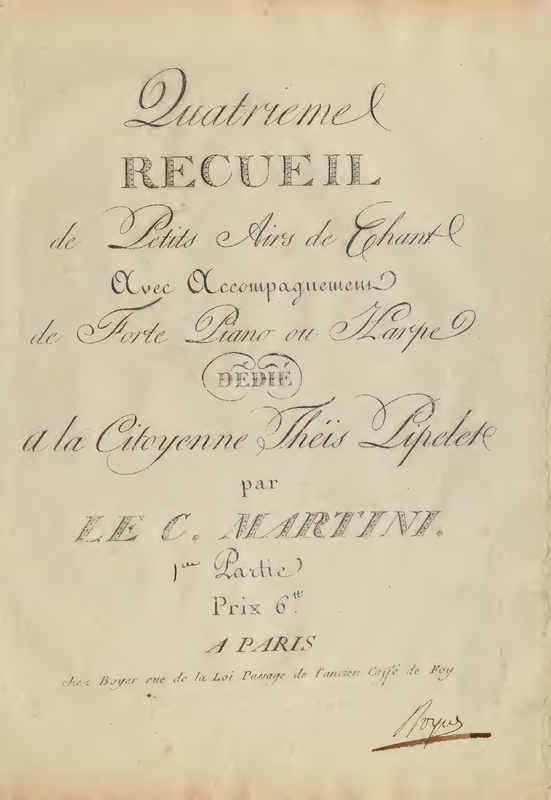 Quatrieme
RECUEIL
de Petits Airs de Chant
Avec Accompagnement
de Forte Piano ou Harpe
DÉDIÉ
a la Citoyenne Theïs Pipelet
par
LE C. MARTINI.
1re Partie
Prix 6tt
A PARIS
chez Boyer rue de la Loi Passage de l'ancien Caffé de Foy
Boyer